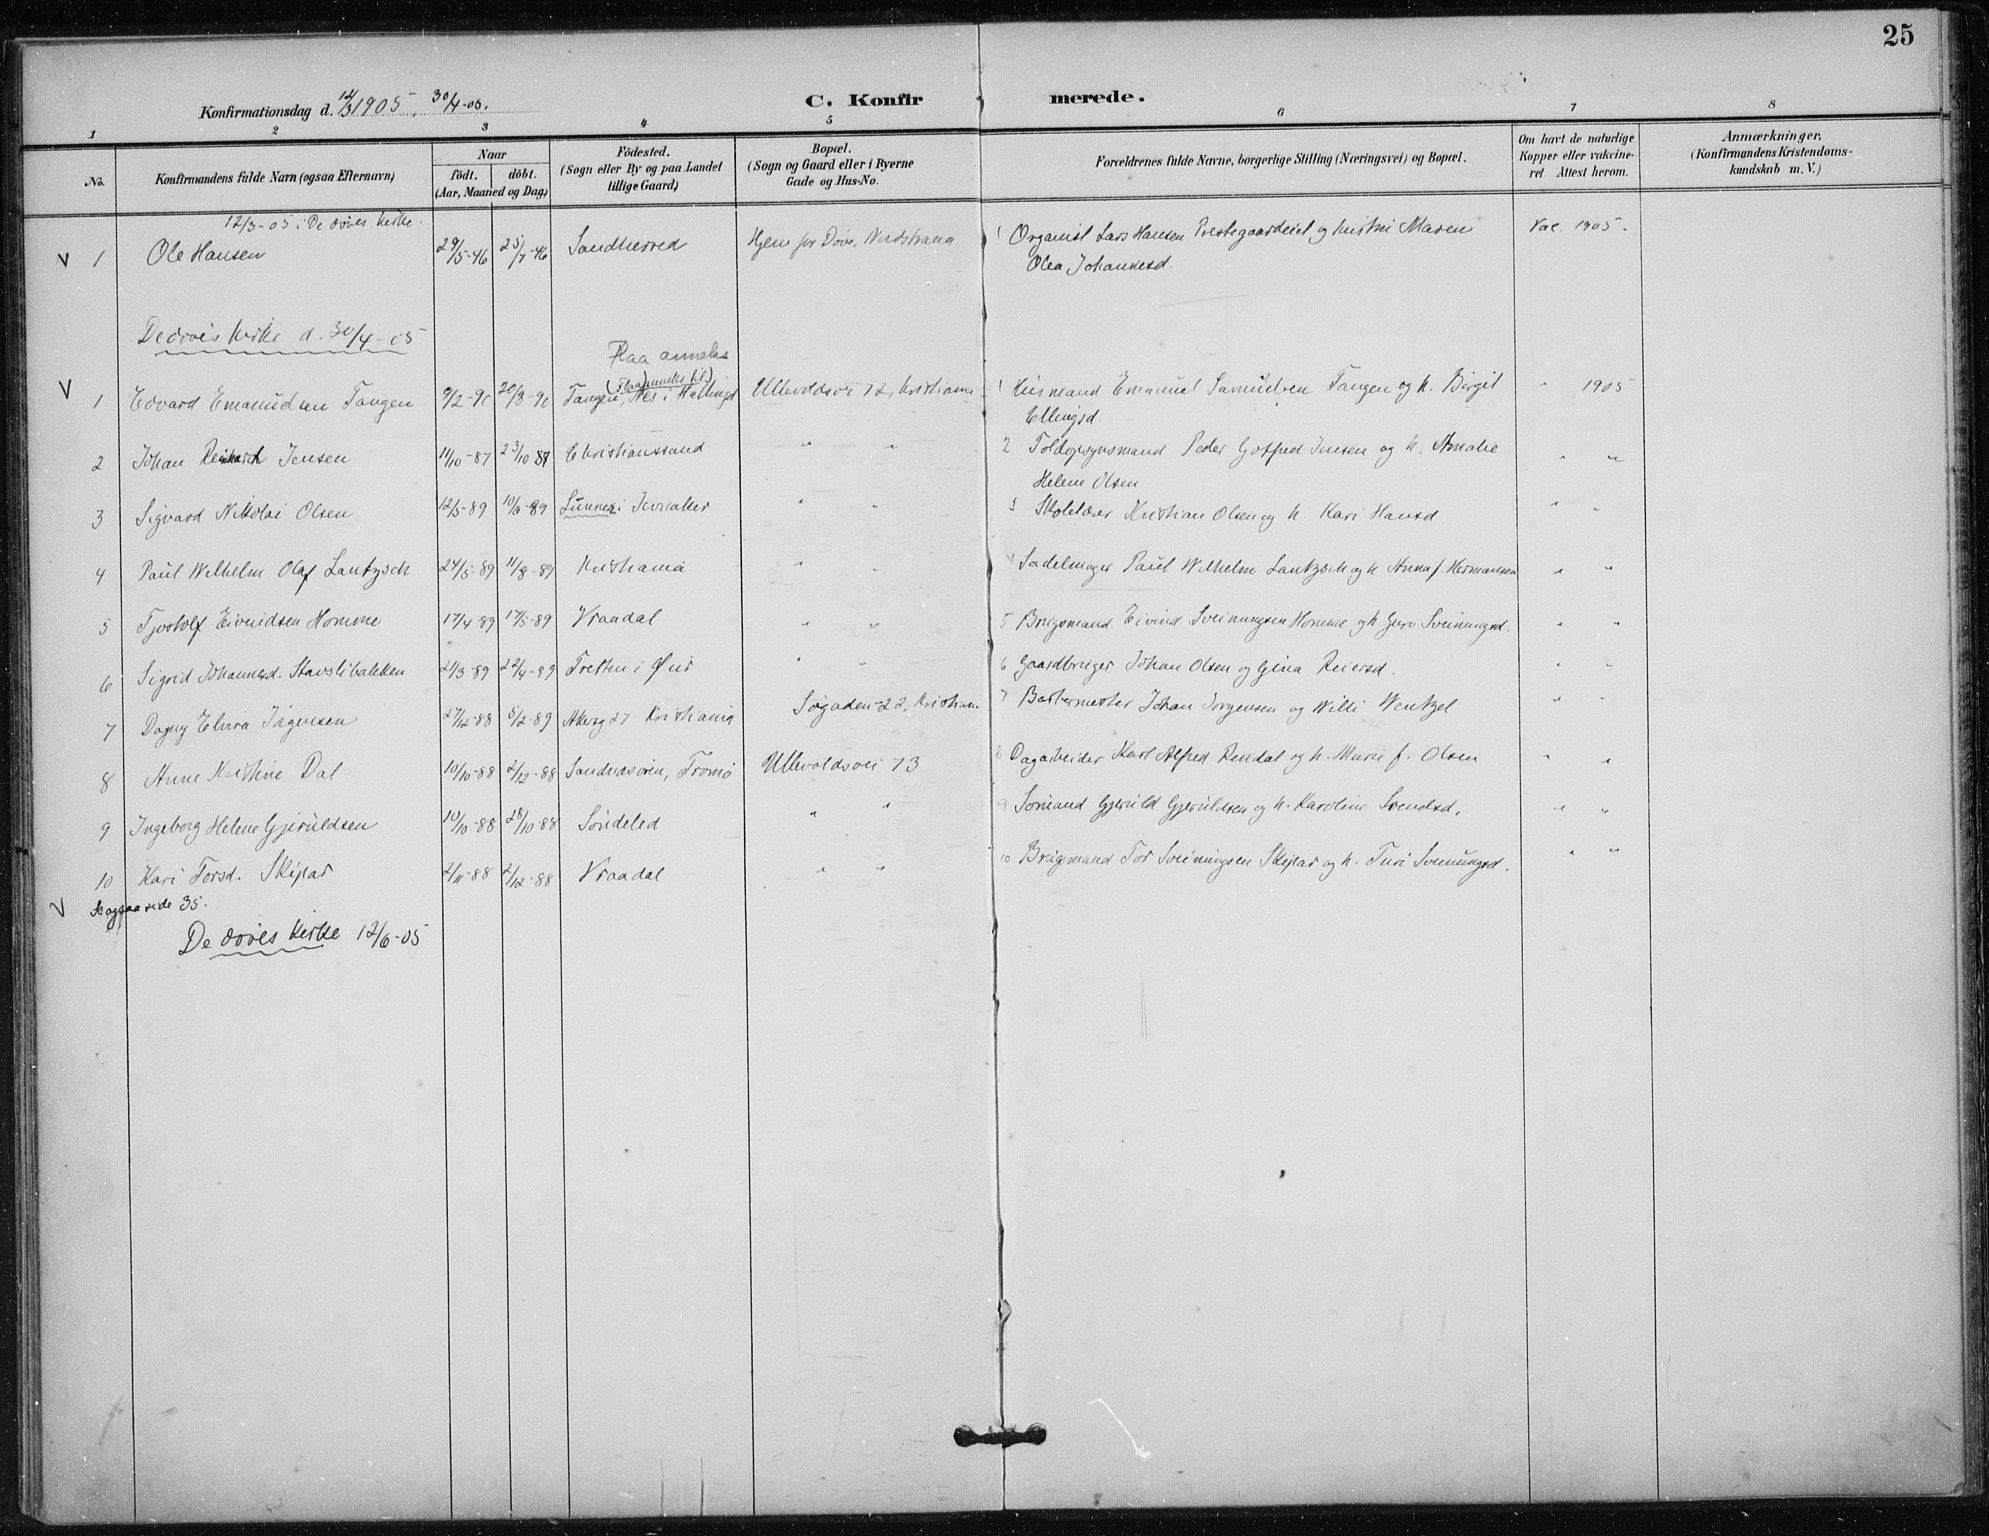 25
Konfirmationsdag d. 12/3 1905, 30/4-05.
C. Konfirmerede.
1 2 3 4 5 6 7 8
No.
Konfirmandens fulde Navn (ogsaa Efternavn)
Naar
födt. döbt.
(Aar, Maaned og Dag)
Födested.
(Sogn eller By og paa Landet
tillige Gaard)
Bopæl.
(Sogn og Gaard eller i Byerne
Gade og Hus-No.
Forældrenes fulde Navne, borgerlige Stilling (Næringsvei) og Bopæl.
Om havt de naturlige
Kopper eller vakcine-
ret. Attest herom.
Anmærkninger.
(Konfirmandens Kristendoms-
kundskab m. V.)
12/3-05 i De døves kirke.
V 1 Ole Hansen 29/5-46 25/7-46 Sandherred Hjem for Døve, Nordstrand 1 Organist Lars Hansen Prestegaardeiet og hustru Maren Vac. 1905.
Olea Johannesd.
De døves kirke d. 30/4-05
Flaa anneks
(Flaa anneks til)
V 1 Edvard Emanuelsen Tangen 9/2-90 20/3-90 Tangen, Nes i Hallingd Ullevoldsvei 72, Kristiania 1 Husmand Emanuel Samuelsen Tangen og h. Birgit " 1905
Ellingsd.
2 Johan Reinhard Jensen 11/10-87 23/10-87 Christianssand " " 2 Toldopsynsmand Peder Gotfred Jensen og h. Amalie " "
Helene Olsen
3 Sigvard Nikolai Olsen 12/5-89 10/6-89 Lunner i Jevnaker " " 3 Skolelærer Kristian Olsen og h. Kari Hansd. " "
4 Paul Wilhelm Olaf Lantzsch 24/5-89 11/8-89 Kristiania " " 4 Sadelmager Paul Wilhelm Lantzsch og h Anna f. Hermansen " "
5 Tjostolf Eivindsen Homme 17/4-89 17/5-89 Vraadal " " 5 Brugsmand Eivind Sveinungsen Homme og h Guro Sveinungsd. " "
6 Sigrid Johannesd. Stavslibakken 21/3-89 22/4-89 Tretten i Øier " " 6 Gaardbruger Johan Olsen og Gina Reiersd. " "
7 Dagny Elvira Jørgensen 27/12-88 5/2-89 Akersg 27 Kristiania Søgaden 22, Kristiania 7 Barbermester Johan Jørgensen og Willi Wentzel " "
8 Anne Kristine Dal 10/10-88 2/12-88 Sandnæsøien, Tromø Ullevoldsvei 73 8 Dagarbeider Karl Alfred Rendal og h. Marie f. Olsen " "
9 Ingeborg Helene Gjeruldsen 10/10-88 28/10-88 Søndeled " " 9 Sømand Gjeruld Gjeruldsen og h. Karoline Svendsd. " "
10 Kari Torsd. Skiplar 2/11-88 2/12-88 Vraadal " " 10 Brugsmand Tor Sveinungsen Skiplar og h. Turi Sveinungsd. " "
V Se ogsaa side 35.
De døves kirke 12/6-05